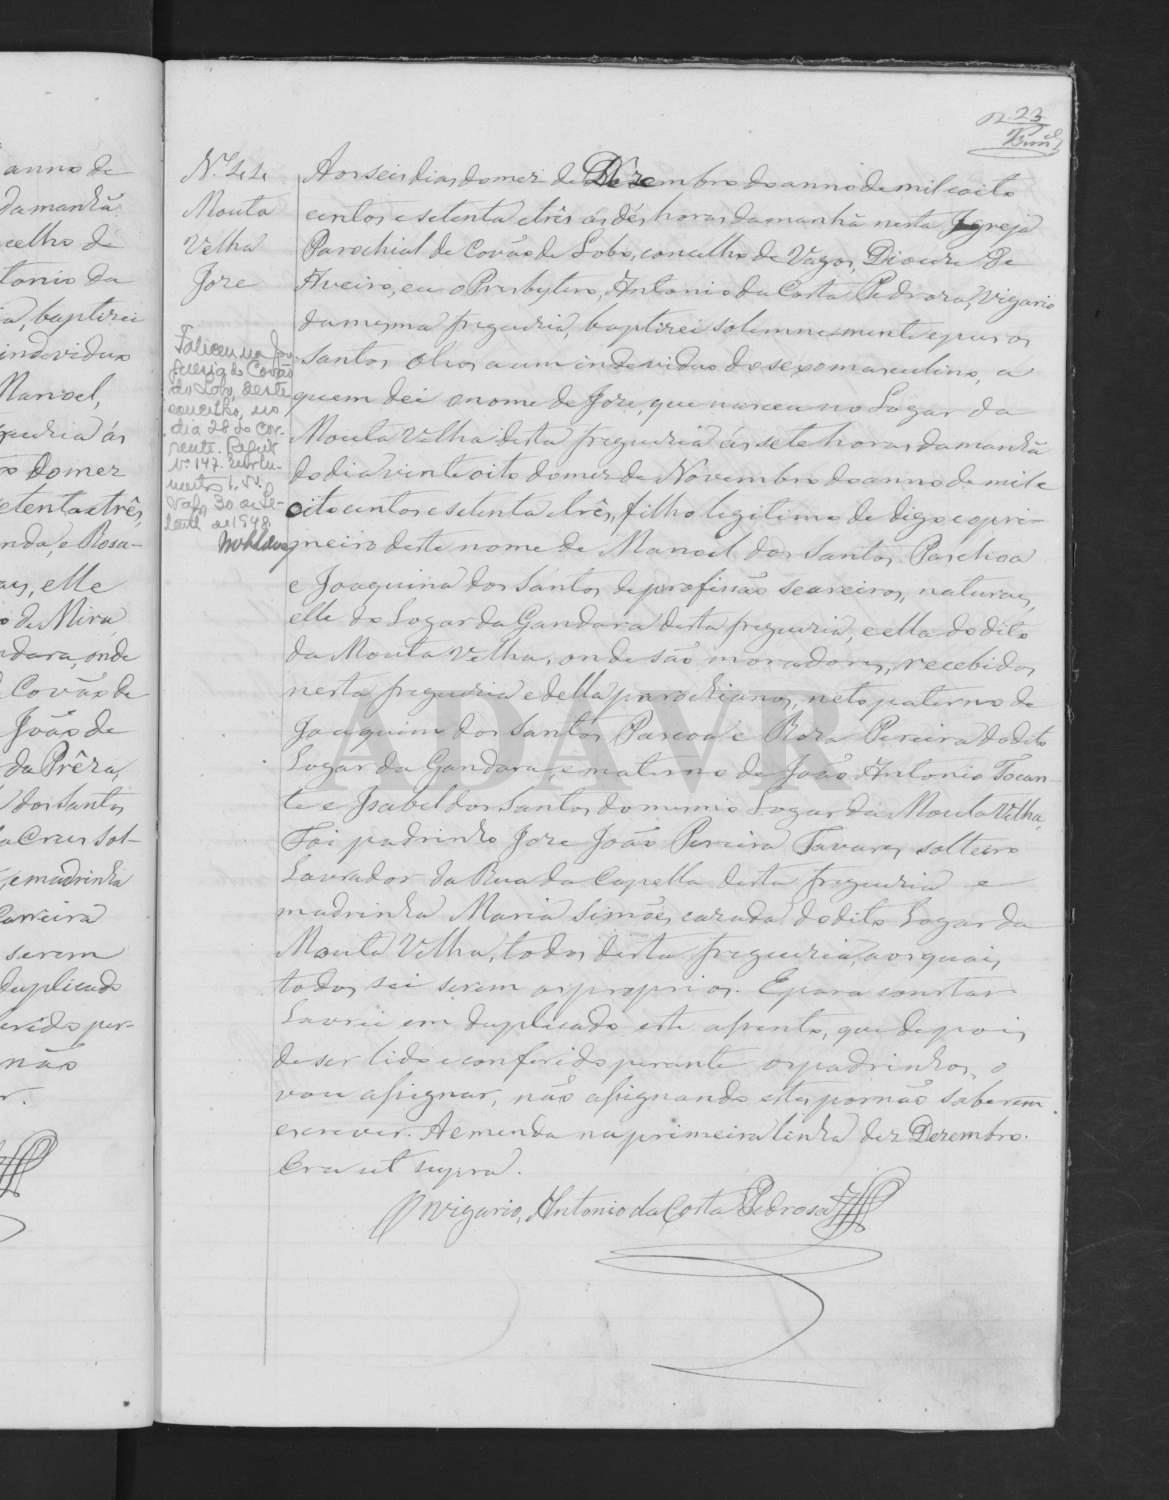 anno de
da manhã
celho de
tonio da
a, baptizei
individuo
Manoel,
guezia ás
do mez
etenta e três,
nda, e Rosa-
aes, elle
de Mira
ndara, onde
Covão de
João de
da Prêza,
dos Santos
a Cruz sol-
e madrinha
Carreira
serem
duplicado
erido per-
não
r.
23
N.º 44
Mouta
Velha
Joze
Faleceu na fre
guezia de Covão
do Lobo, deste
concelho, no
dia 28 do cor-
rente. Registo
Nº 147.
Vagos, 30 de
de 1948
Aos seis dias do mez de Dezembro do anno de mil e oito
centos e setenta e três ás dés horas da manhã nesta Igreja
Parochial de Covão de Lobo, concelho de Vagos, Dioceze de
Aveiro, eu o Presbytero, Antonio da Costa Pedroza, Vigario
da mesma freguezia, baptizei solemnemente e puz os
Santos Olios a um individuo do sexo masculino, a
quem dei o nome de Joze, que nasceu no Lugar da
Mouta Velha desta freguezia ás sete horas da manhã
do dia vinte oito do mez de Novembro do anno de mil e
oito centos e setenta e três, filho legitimo de digo e o pri-
meiro deste nome de Manoel dos Santos Paschoa
e Joaquina dos Santos de profissão seareiros, naturaes,
elle do Lugar da Gandara desta freguezia, e ella do dito
da Mouta Velha, onde são moradores, recebidos
nesta freguezia e della parochianos, neto paterno de
Joaquim dos Santos Pascoa e Roza Pereira do dito
Lugar da Gandara, e materno de João Antonio Tocan-
te e Isabel dos Santos do mesmo Lugar da Mouta Velha,
Foi padrinho Joze João Pereira Tavares solteiro
Lavrador da Rua da Capella desta freguezia e
madrinha Maria Simões, cazada do dito Lugar da
Mouta Velha, todos desta freguezia, aos quaes
todos sei serem os proprios. E para constar
Lavrei em duplicado este assento, que depois
de ser lido e conferido perante os padrinhos, o
vou assignar, não assignando estes por não saberem
escrever. A emenda na primeira linha diz Dezembro.
Era ut supra.
O Vigario, Antonio da Costa Pedrosa
ADAVR